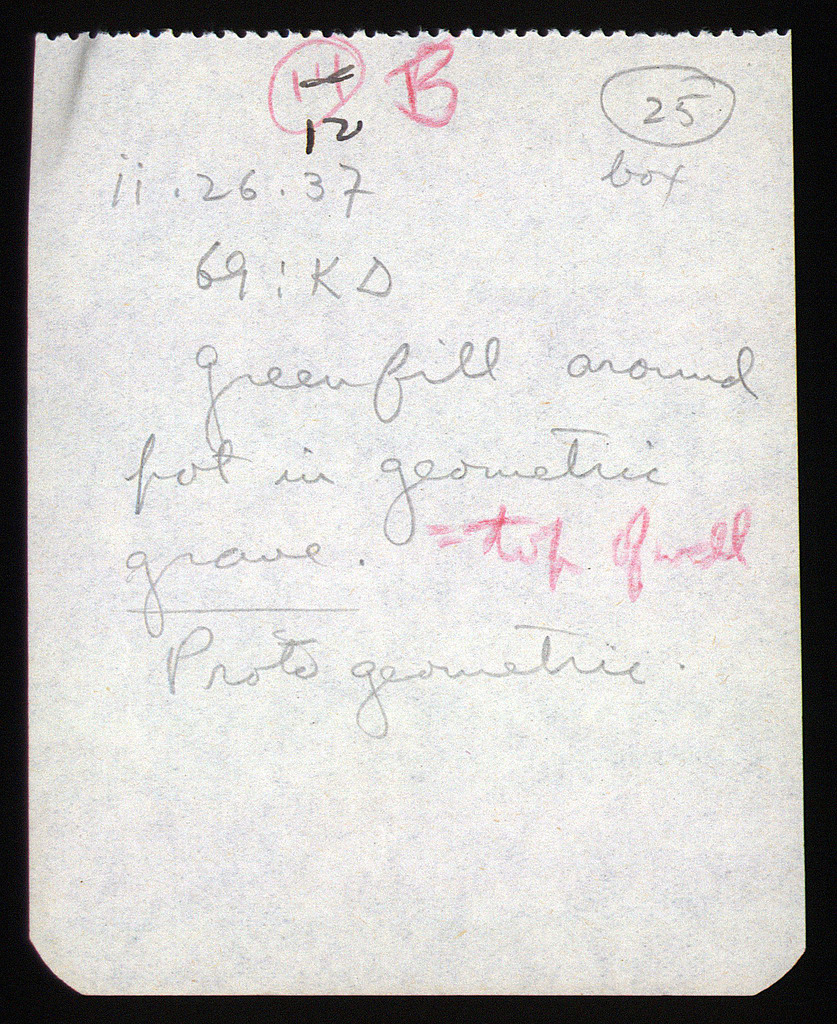 111 B
25
12
box
ii . 26 . 37
69 : K D
green fill around
pot in geometric
grave. = top of well
Proto geometric.